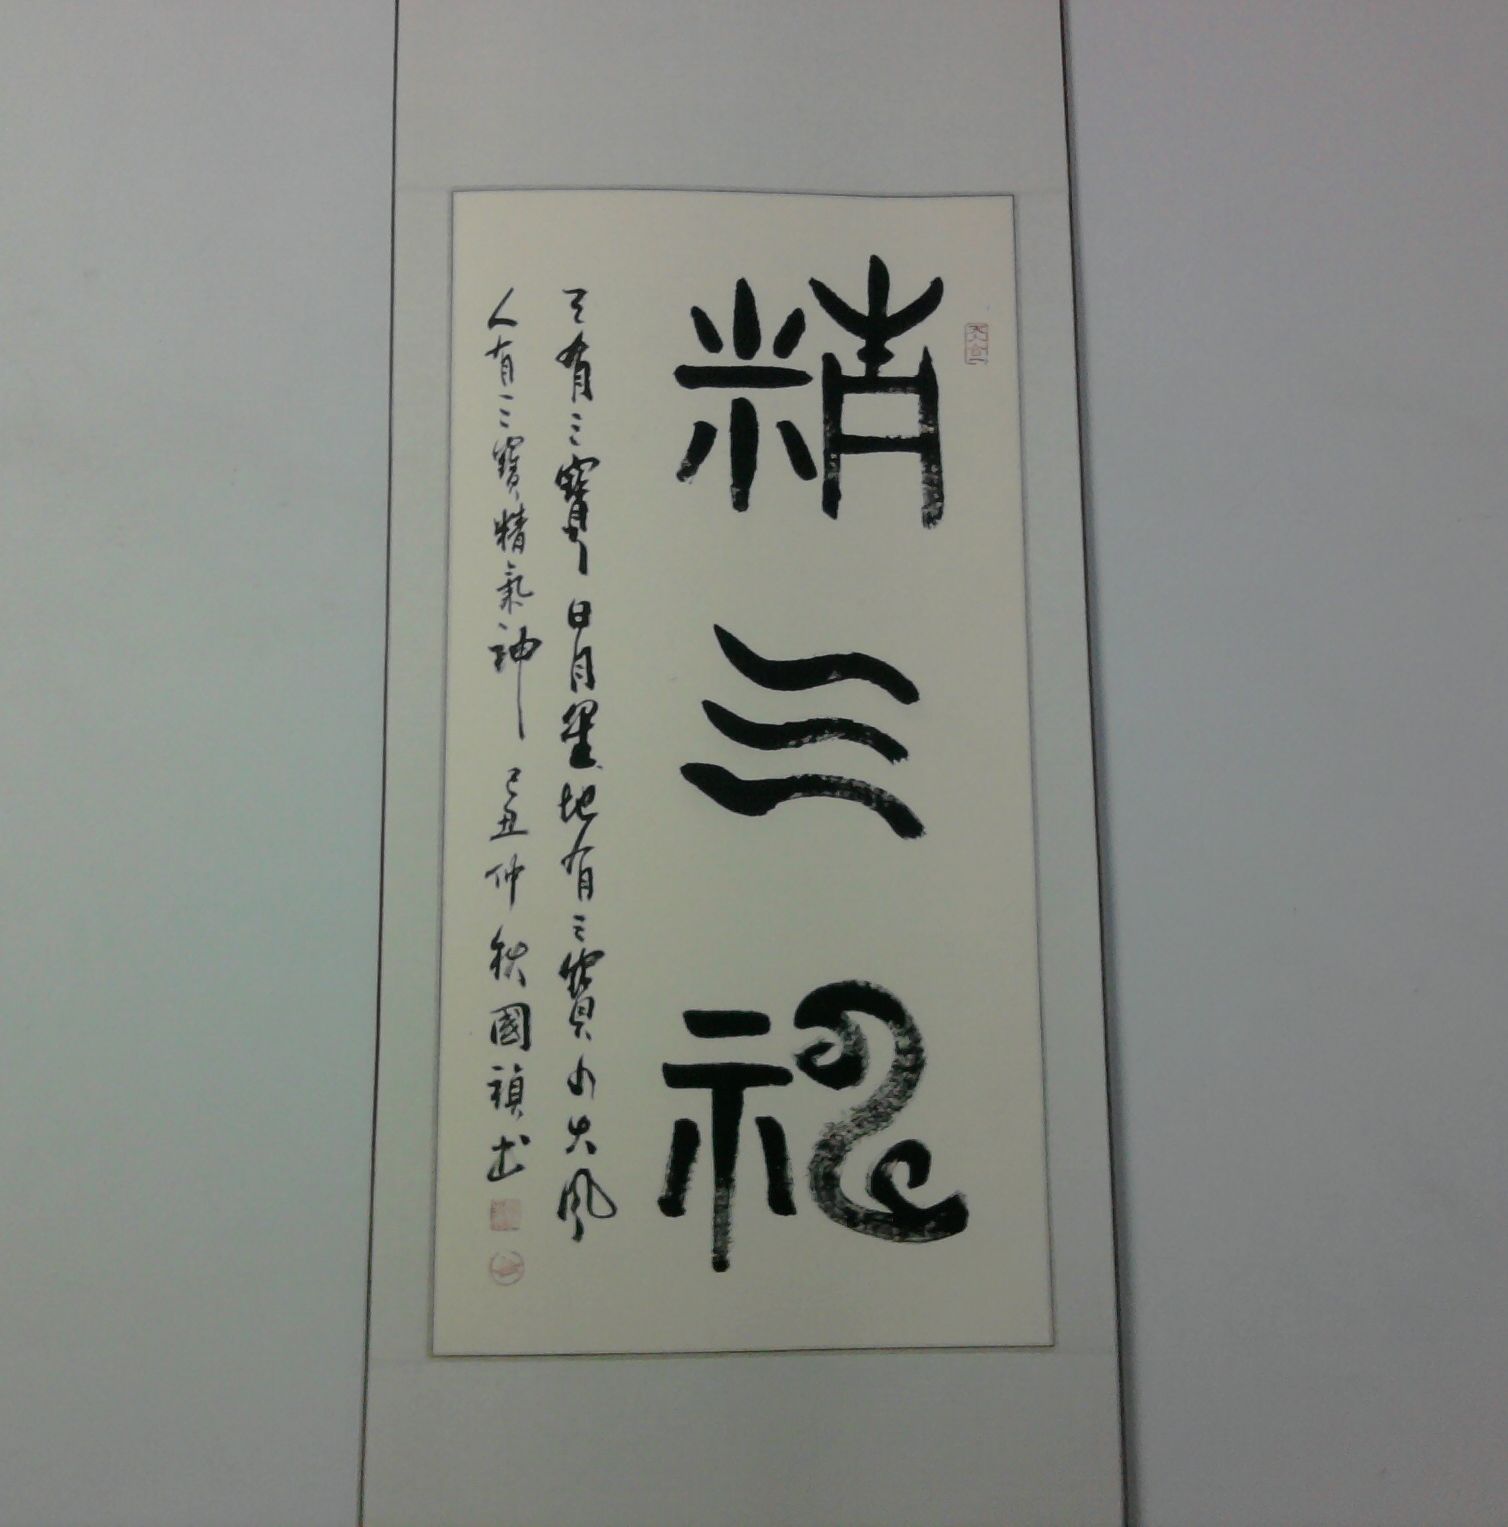 精气神
天有三寶日月星地有三寶水火風
人有三寶精氣神 己丑仲秋國禎書